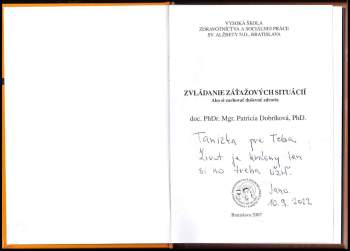 VYSOKÁ ŠKOLA
ZDRAVOTNÍCTVA A SOCIÁLNEJ PRÁCE
SV. ALŽBETY N.O., BRATISLAVA
ZVLÁDANIE ZÁŤAŽOVÝCH SITUÁCIÍ
Ako si zachovať duševné zdravie
doc. PhDr. Mgr. Patricia Dobríková, PhD.
Tanizka pre Teba
Život je krásny len
si ho treba užiť.
Jano
10.9.2022
Bratislava 2007